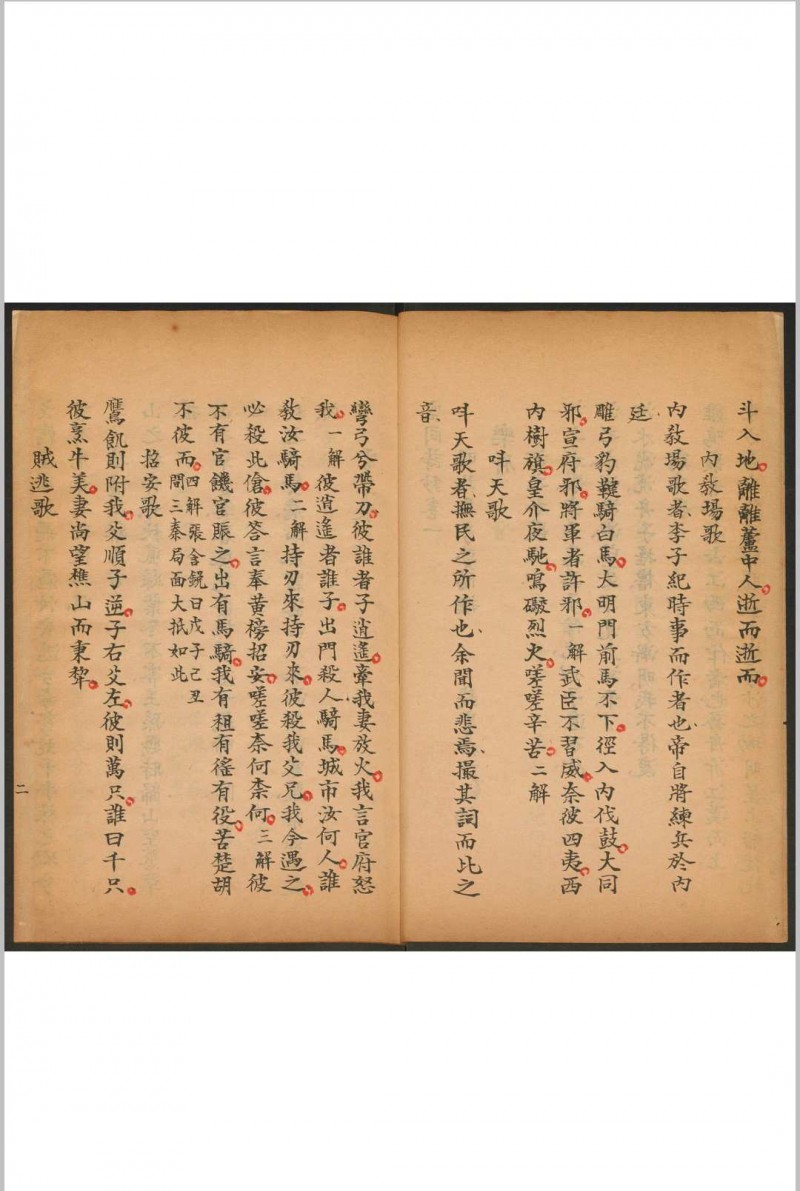 斗入地離離蘆中人逝而逝而
內教場歌
內教場歌者李子紀時事而作者也帝自將練兵於內
廷
雕弓豹鞬騎白馬大明門前馬不下徑入內伐鼓大同
邪宣府邪將軍者許邪一解武臣不習威奈彼四夷西
內樹旗皇介夜馳鳴礮烈火嗟嗟辛苦二解
吽天歌
吽天歌者撫民之所作也余聞而悲焉撮其詞而比之
音
彎弓兮帶刀彼誰者子逍遙牽我妻放火我言官府怒
我一解彼逍遙者誰子出門殺人騎馬城市汝何人誰
教汝騎馬二解持刃來持刃來彼殺我父兄我今遇之
必殺此傖彼答言奉黃榜招安嗟嗟奈何柰何三解彼
不有官饑官賑之出有馬騎我有租有徭有役苦楚胡
不彼而四解張含銑曰戊子己丑
間三秦局面大抵如此
招安歌
鷹飢則附我父順子逆子右父左彼則萬只誰曰千只
彼烹牛美妻尚望樵山而秉犂
賊逃歌
二